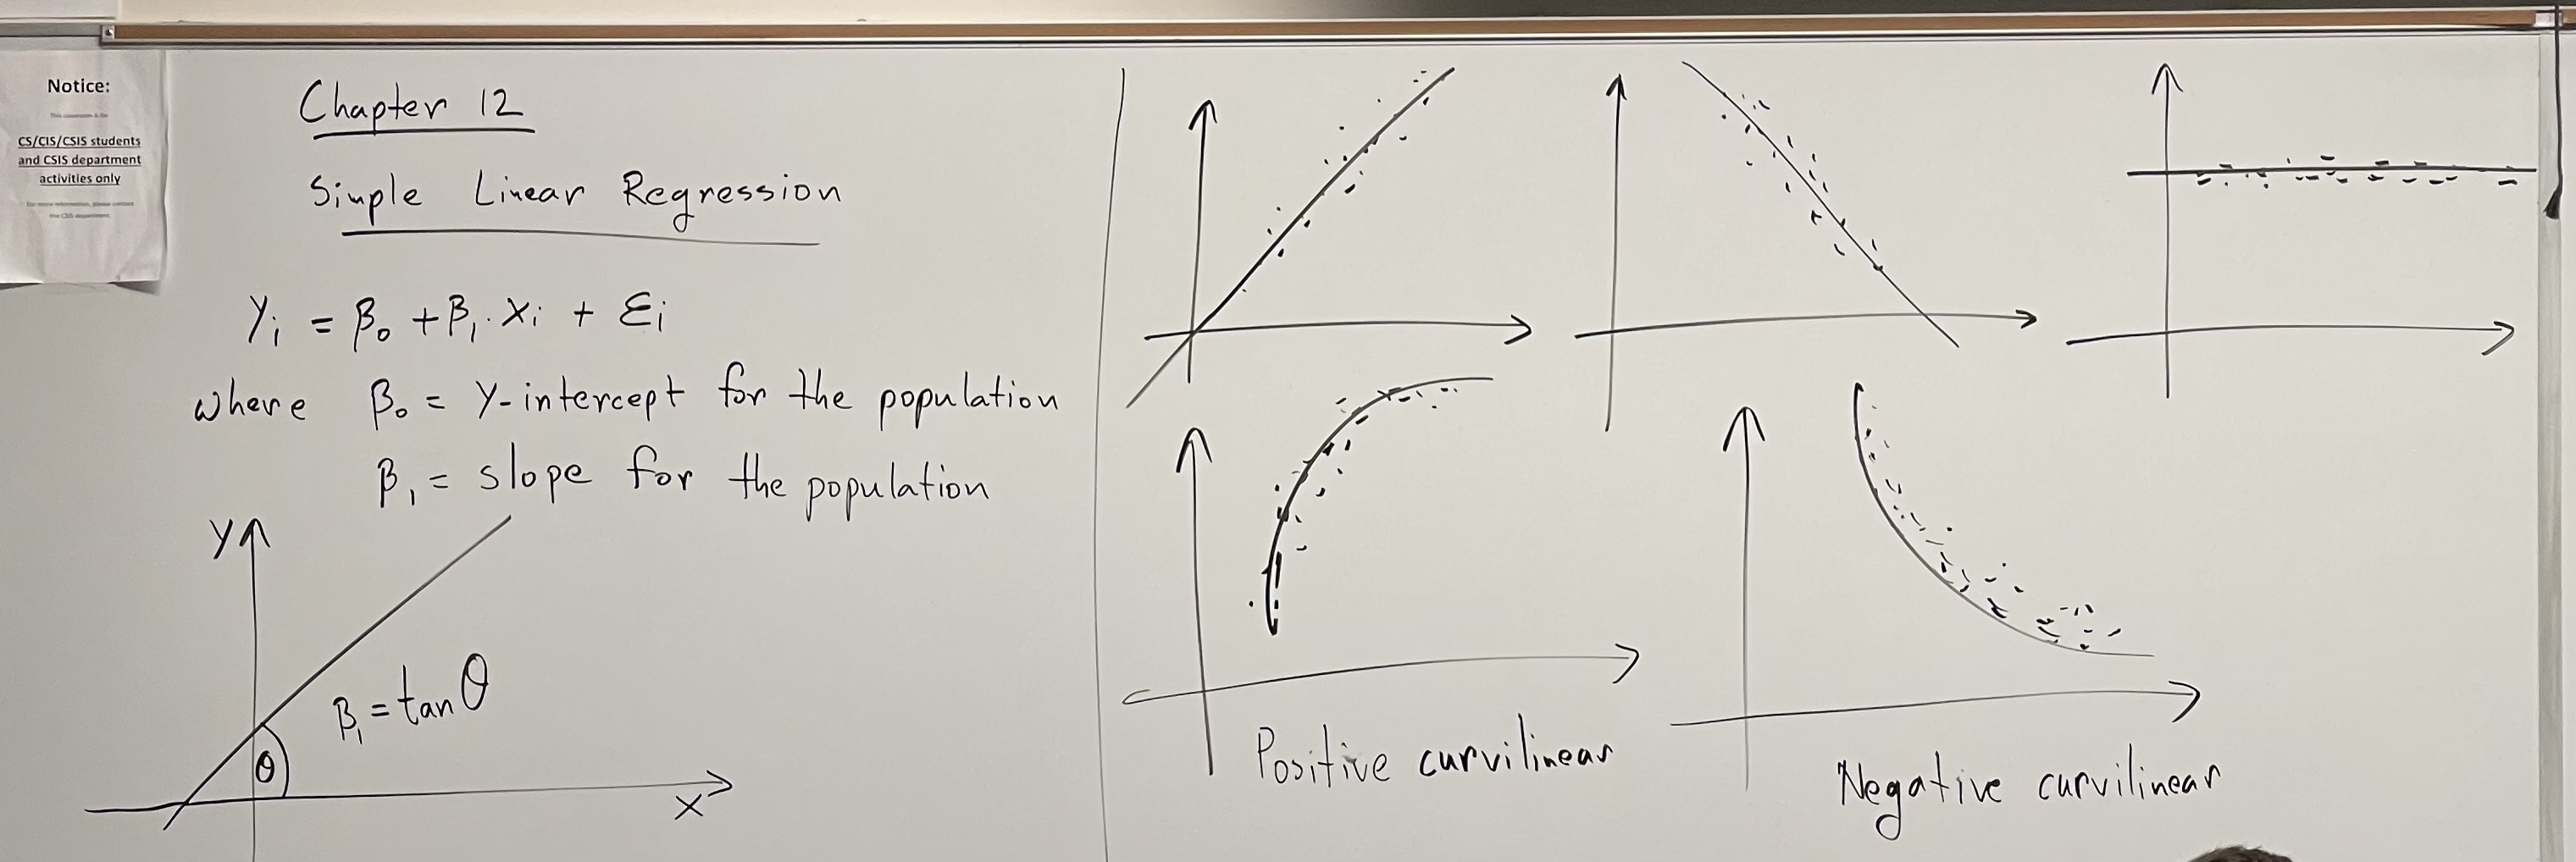 Notice:
This classroom is for
CS/CIS/CSIS students
and CSIS department
activities only
For more information, please contact
the CSIS department.
Chapter 12
Simple Linear Regression
Yi = β₀ + β₁ · Xi + Ɛi
where β₀ = Y-intercept for the population
β₁ = slope for the population
Y
β₁ = tan θ
θ
X
Positive curvilinear
Negative curvilinear